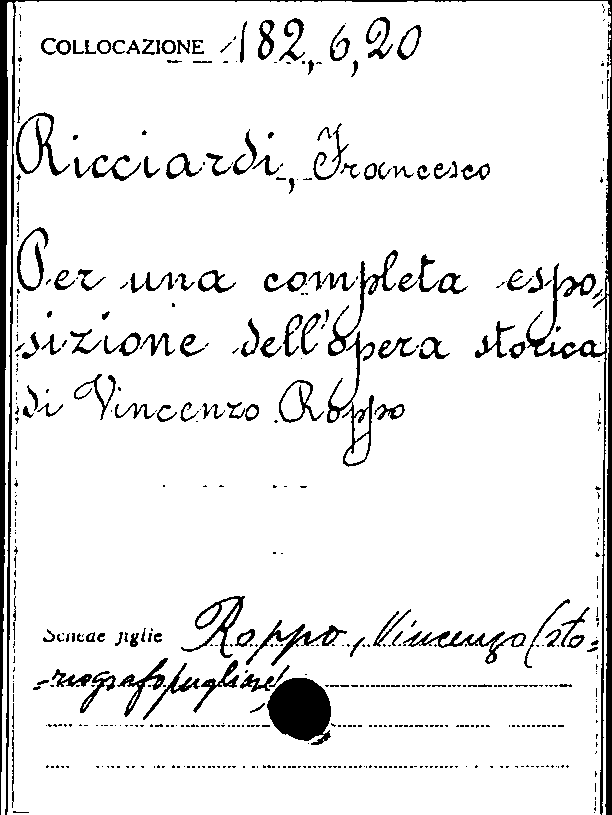 COLLOCAZIONE 182,6,20
Ricciardi, Francesco
Per una completa espo=
sizione dell'opera storica
di Vincenzo Roppo
Schede figlie Roppo, Vincenzo (sto=
=riografo pugliese)